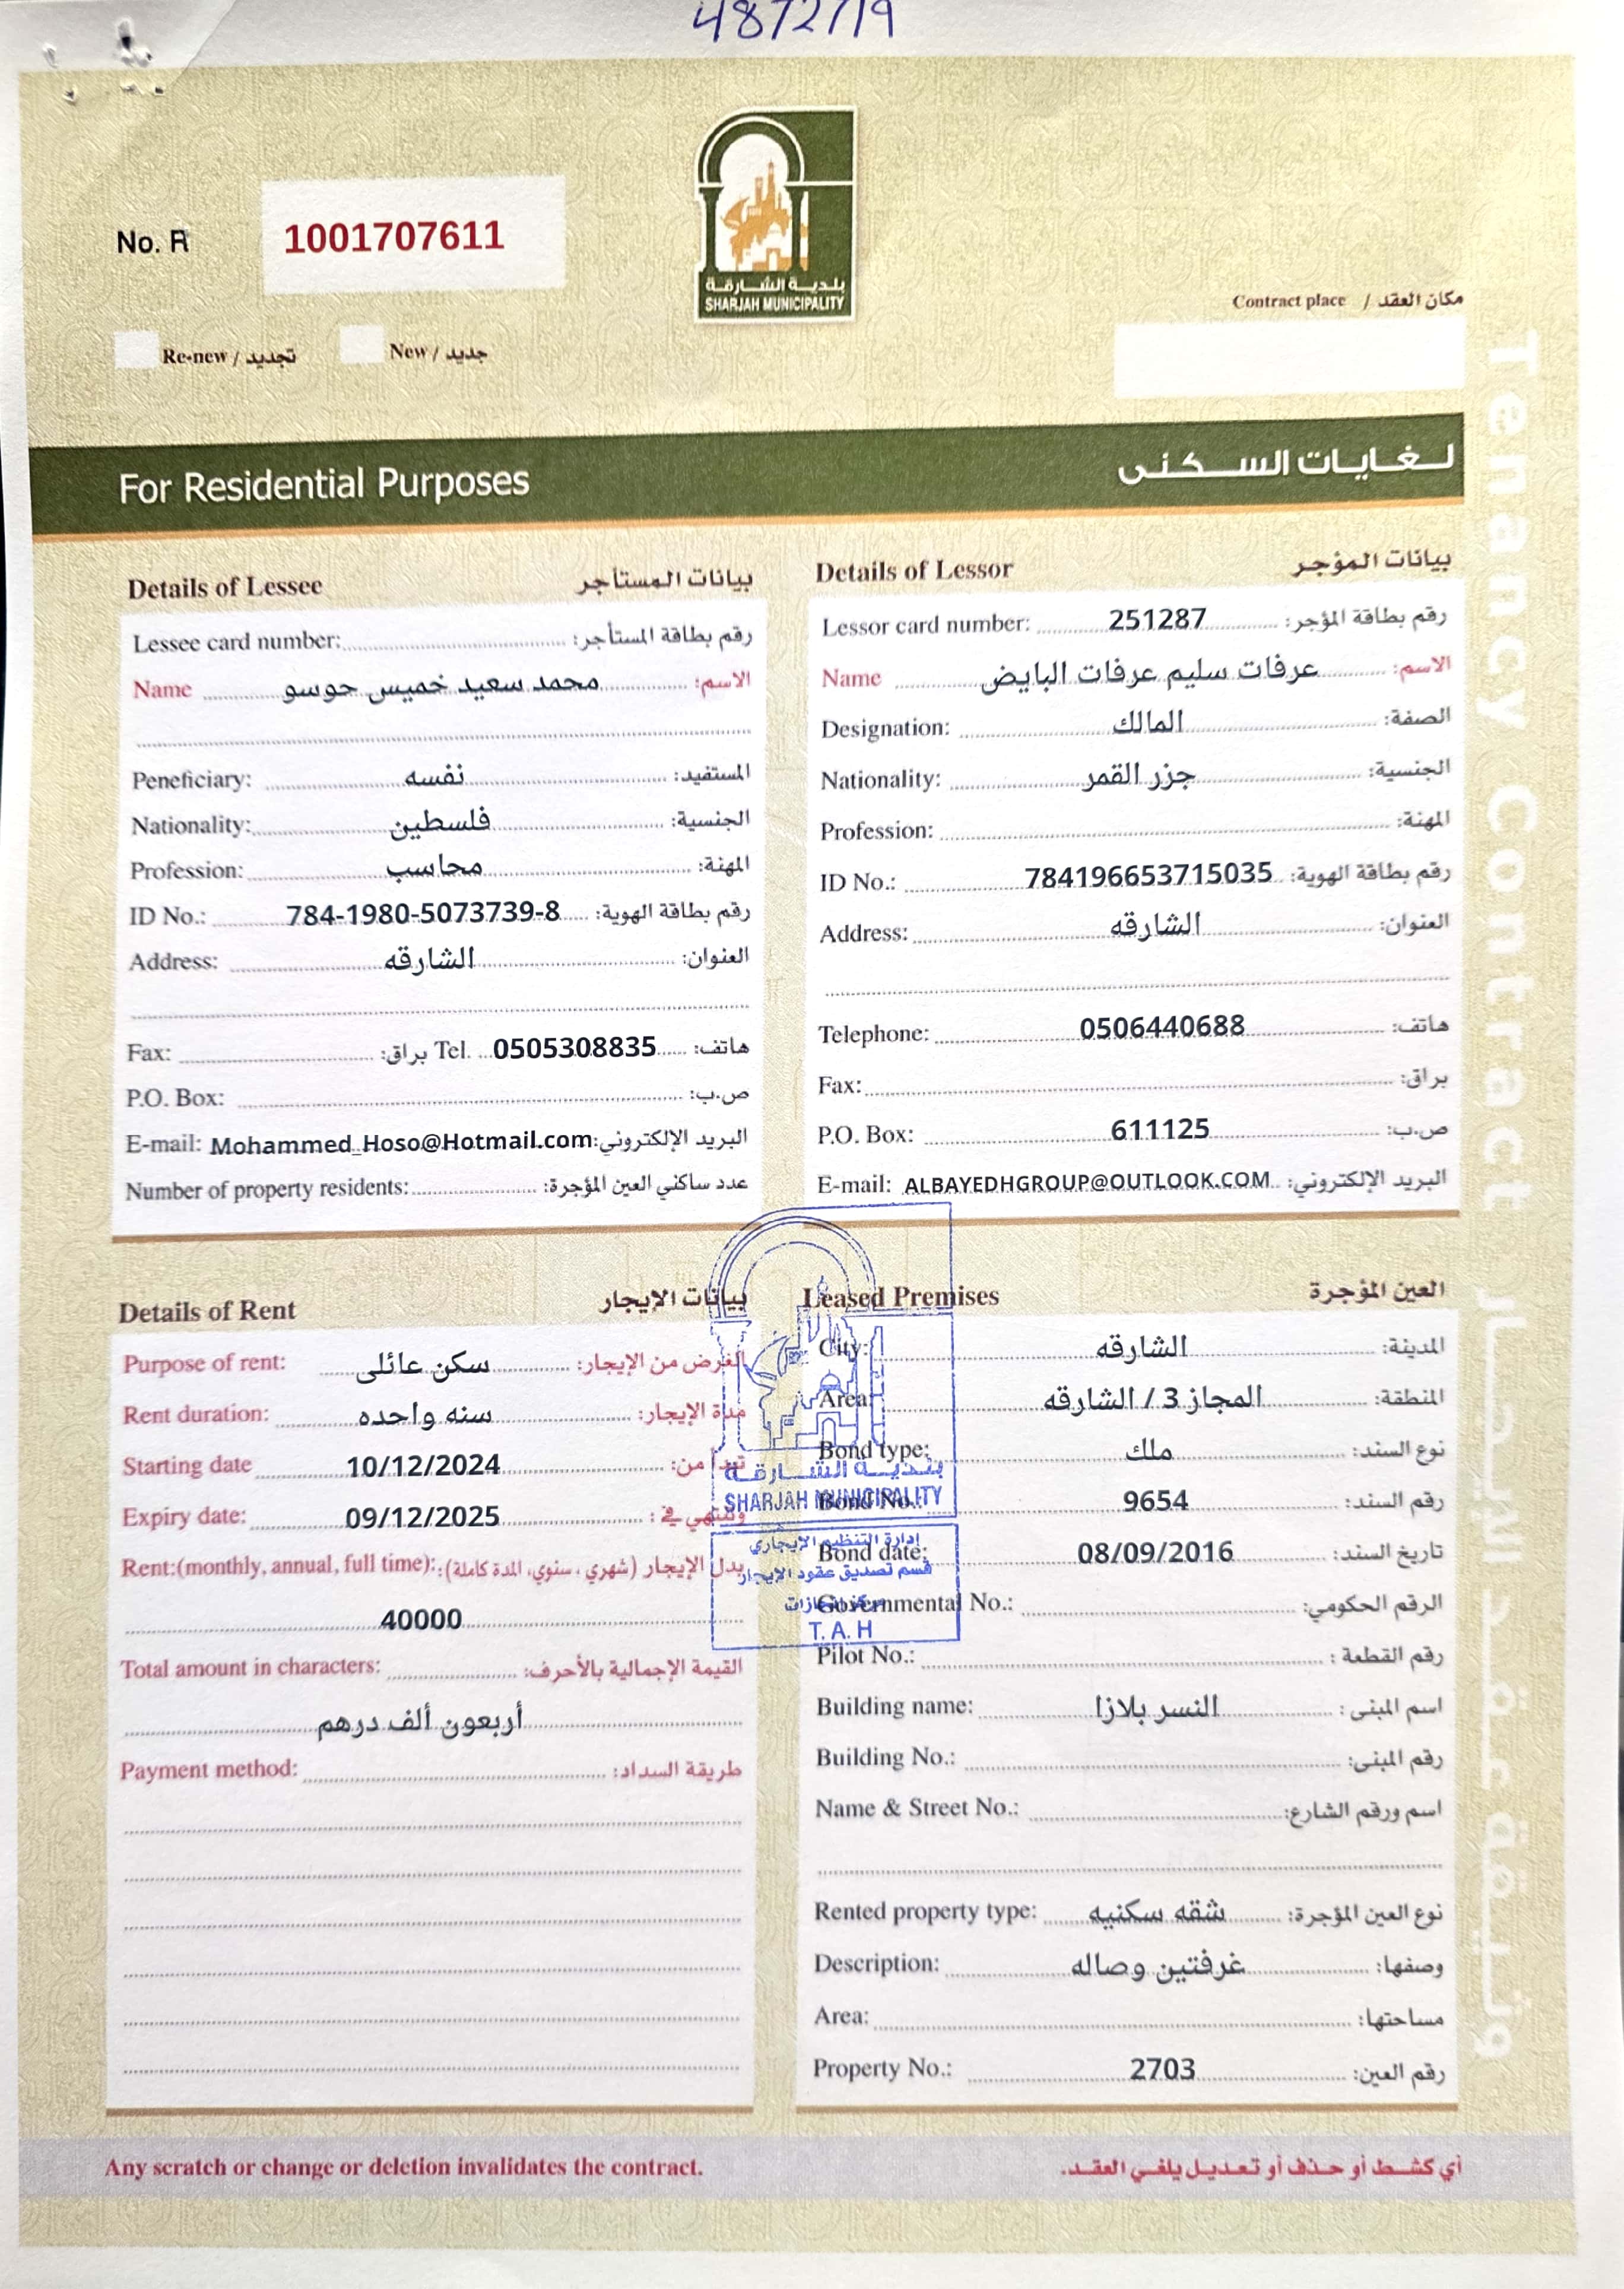 4872719
No. R 1001707611
بلدية الشارقة
SHARJAH MUNICIPALITY
Contract place / مكان العقد
Re-new / تجديد New / جديد
Tenancy Contract
For Residential Purposes لغايات السكنى
Details of Lessee بيانات المستأجر
Lessee card number: رقم بطاقة المستأجر:
Name محمد سعيد خميس حوسو الاسم:
Peneficiary: نفسه المستفيد:
Nationality: فلسطين الجنسية:
Profession: محاسب المهنة:
ID No.: 784-1980-5073739-8 رقم بطاقة الهوية:
Address: الشارقه العنوان:
Fax: براق: Tel. 0505308835 هاتف:
P.O. Box: ص.ب:
E-mail: Mohammed_Hoso@Hotmail.com البريد الإلكتروني:
Number of property residents: عدد ساكني العين المؤجرة:
Details of Lessor بيانات المؤجر
Lessor card number: 251287 رقم بطاقة المؤجر:
Name عرفات سليم عرفات البايض الاسم:
Designation: المالك الصفة:
Nationality: جزر القمر الجنسية:
Profession: المهنة:
ID No.: 784196653715035 رقم بطاقة الهوية:
Address: الشارقه العنوان:
Telephone: 0506440688 هاتف:
Fax: براق:
P.O. Box: 611125 ص.ب:
E-mail: ALBAYEDHGROUP@OUTLOOK.COM البريد الإلكتروني:
Details of Rent بيانات الإيجار
Purpose of rent: سكن عائلى الغرض من الإيجار:
Rent duration: سنه واحده مدة الإيجار:
Starting date 10/12/2024 تبدأ من:
Expiry date: 09/12/2025 وتنتهي في:
Rent:(monthly, annual, full time): بدل الإيجار (شهري، سنوي، المدة كاملة):
40000
Total amount in characters: القيمة الإجمالية بالأحرف:
أربعون ألف درهم
Payment method: طريقة السداد:
بلدية الشارقة
SHARJAH MUNICIPALITY
إدارة التنظيم الإيجاري
قسم تصديق عقود الإيجار
T. A. H
Leased Premises العين المؤجرة
City: الشارقه المدينة:
Area: المجاز 3 / الشارقه المنطقة:
Bond type: ملك نوع السند:
Bond No.: 9654 رقم السند:
Bond date: 08/09/2016 تاريخ السند:
Governmental No.: الرقم الحكومي:
Pilot No.: رقم القطعة:
Building name: النسر بلازا اسم المبنى:
Building No.: رقم المبنى:
Name & Street No.: اسم ورقم الشارع:
Rented property type: شقه سكنيه نوع العين المؤجرة:
Description: غرفتين وصاله وصفها:
Area: مساحتها:
Property No.: 2703 رقم العين:
Any scratch or change or deletion invalidates the contract. أي كشط أو حذف أو تعديل يلغي العقد.